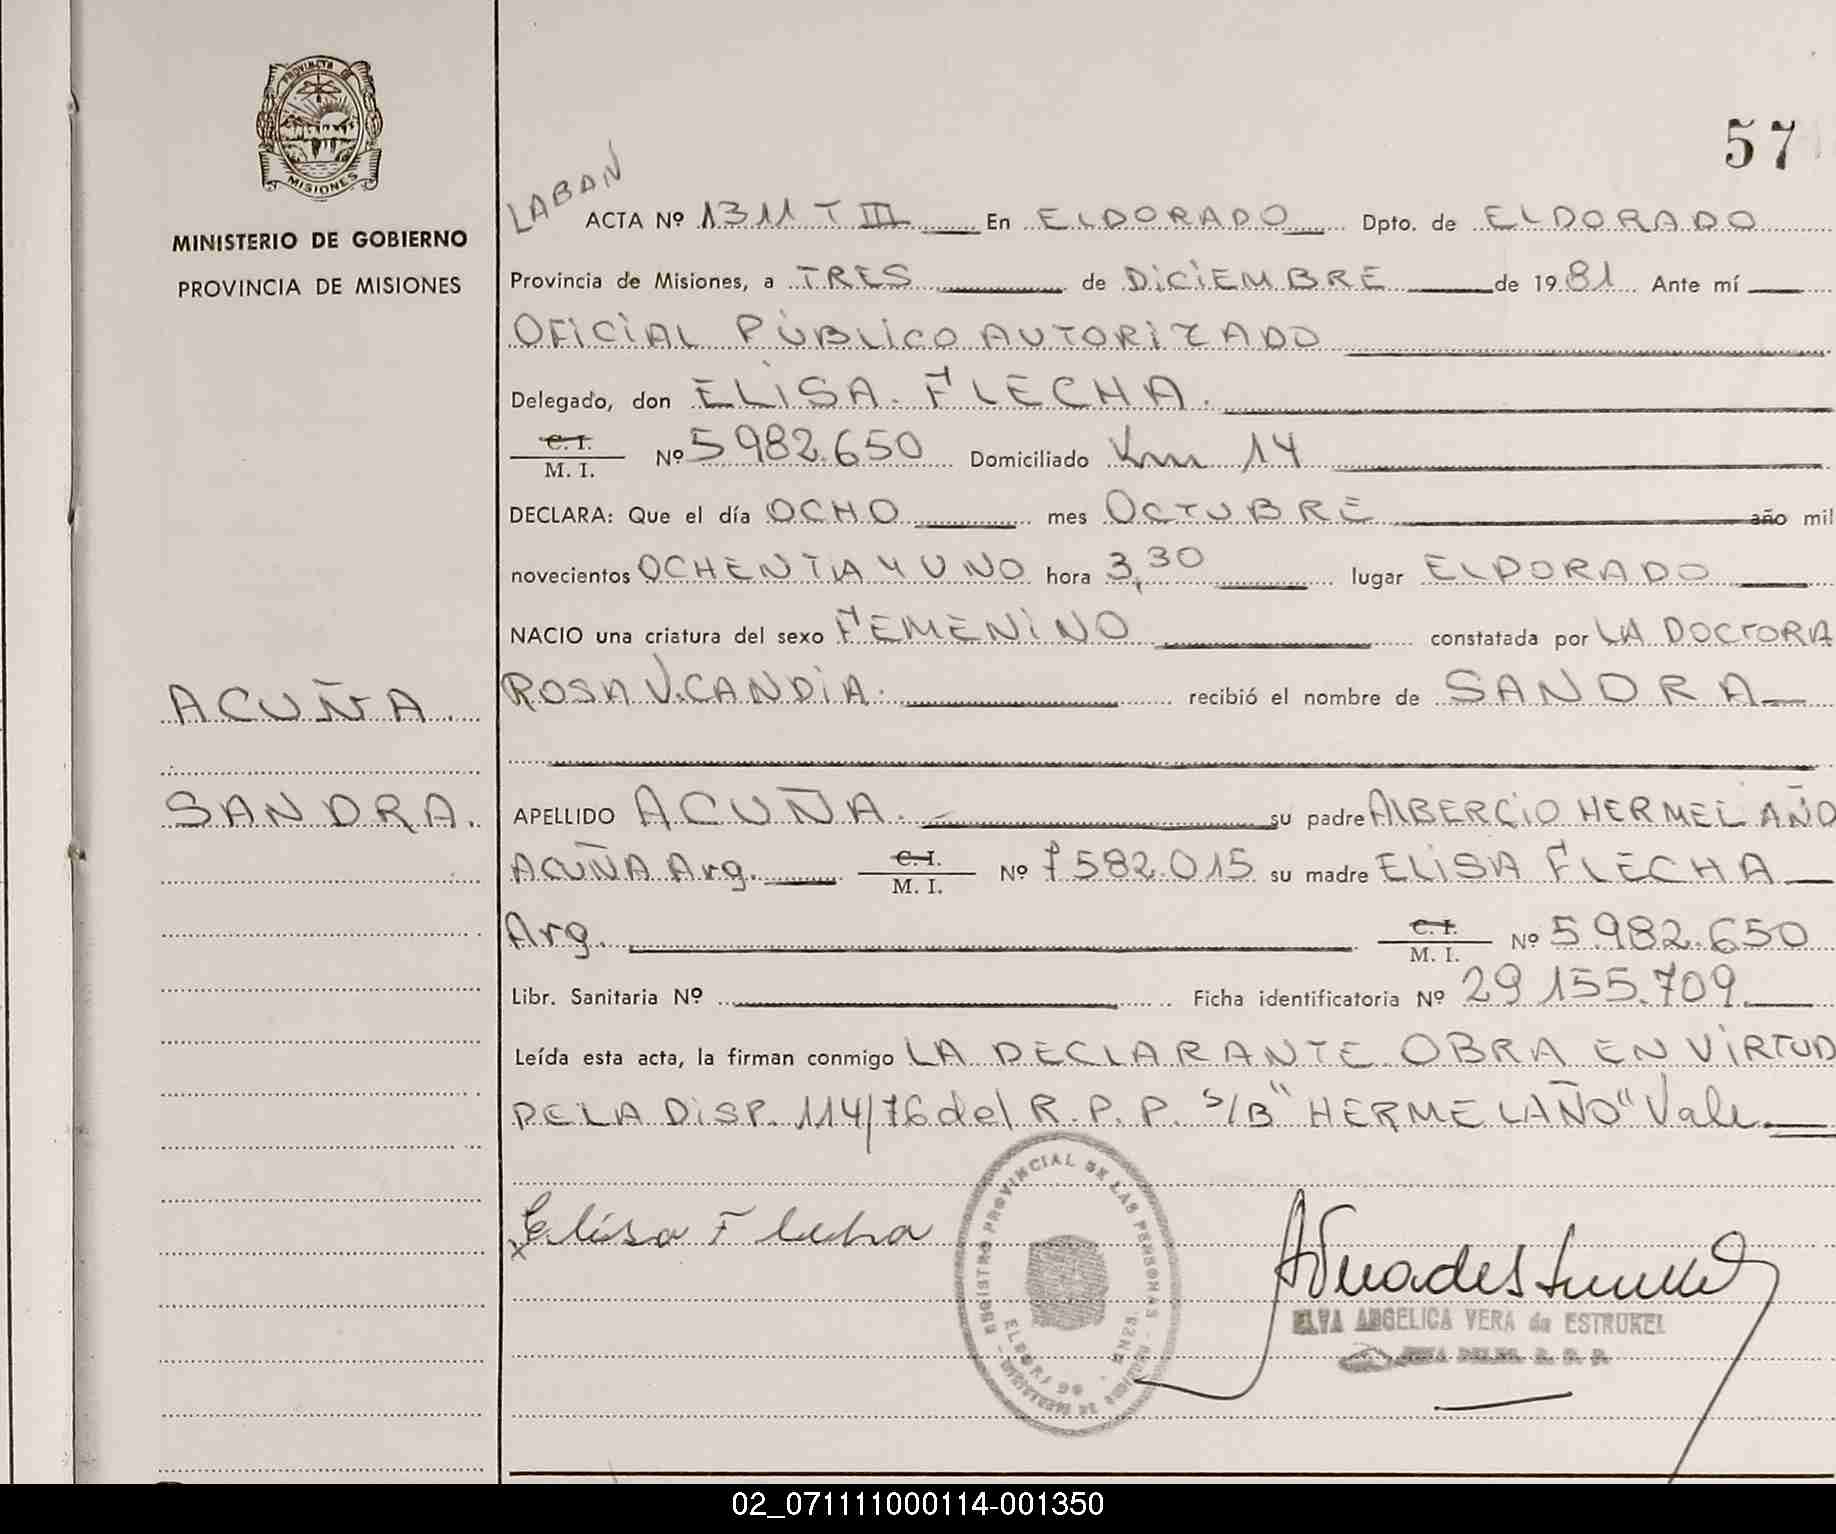 PROVINCIA DE
MISIONES
MINISTERIO DE GOBIERNO
PROVINCIA DE MISIONES
57
LABAN
ACTA Nº 1311 T III En ELDORADO Dpto. de ELDORADO
Provincia de Misiones, a TRES de DICIEMBRE de 1981 Ante mí
OFICIAL PÚBLICO AUTORIZADO
Delegado, don ELISA FLECHA.
C. I.
M. I. Nº 5982.650 Domiciliado Km 14
DECLARA: Que el día OCHO mes OCTUBRE año mil
novecientos OCHENTIA Y UNO hora 3,30 lugar ELDORADO
NACIO una criatura del sexo FEMENINO constatada por LA DOCTORA
ACUÑA. ROSA V. CANDIA. recibió el nombre de SANDRA
SANDRA. APELLIDO ACUÑA. su padre ALBERCIO HERMELAÑO
ACUÑA Arg. C. I.
M. I. Nº 7582.015 su madre ELISA FLECHA
Arg. C. I.
M. I. Nº 5.982.650
Libr. Sanitaria Nº Ficha identificatoria Nº 29.155.709
Leída esta acta, la firman conmigo LA DECLARANTE OBRA EN VIRTUD
DE LA DISP. 114/76 del R.P.P. S/B "HERMELAÑO" Vale
x Elisa Flecha
REGISTRO PROVINCIAL DE LAS PERSONAS
ELDORADO
ELVA ANGELICA VERA de ESTRUKEL
JEFA DELEG. R. P. P.
02_071111000114-001350